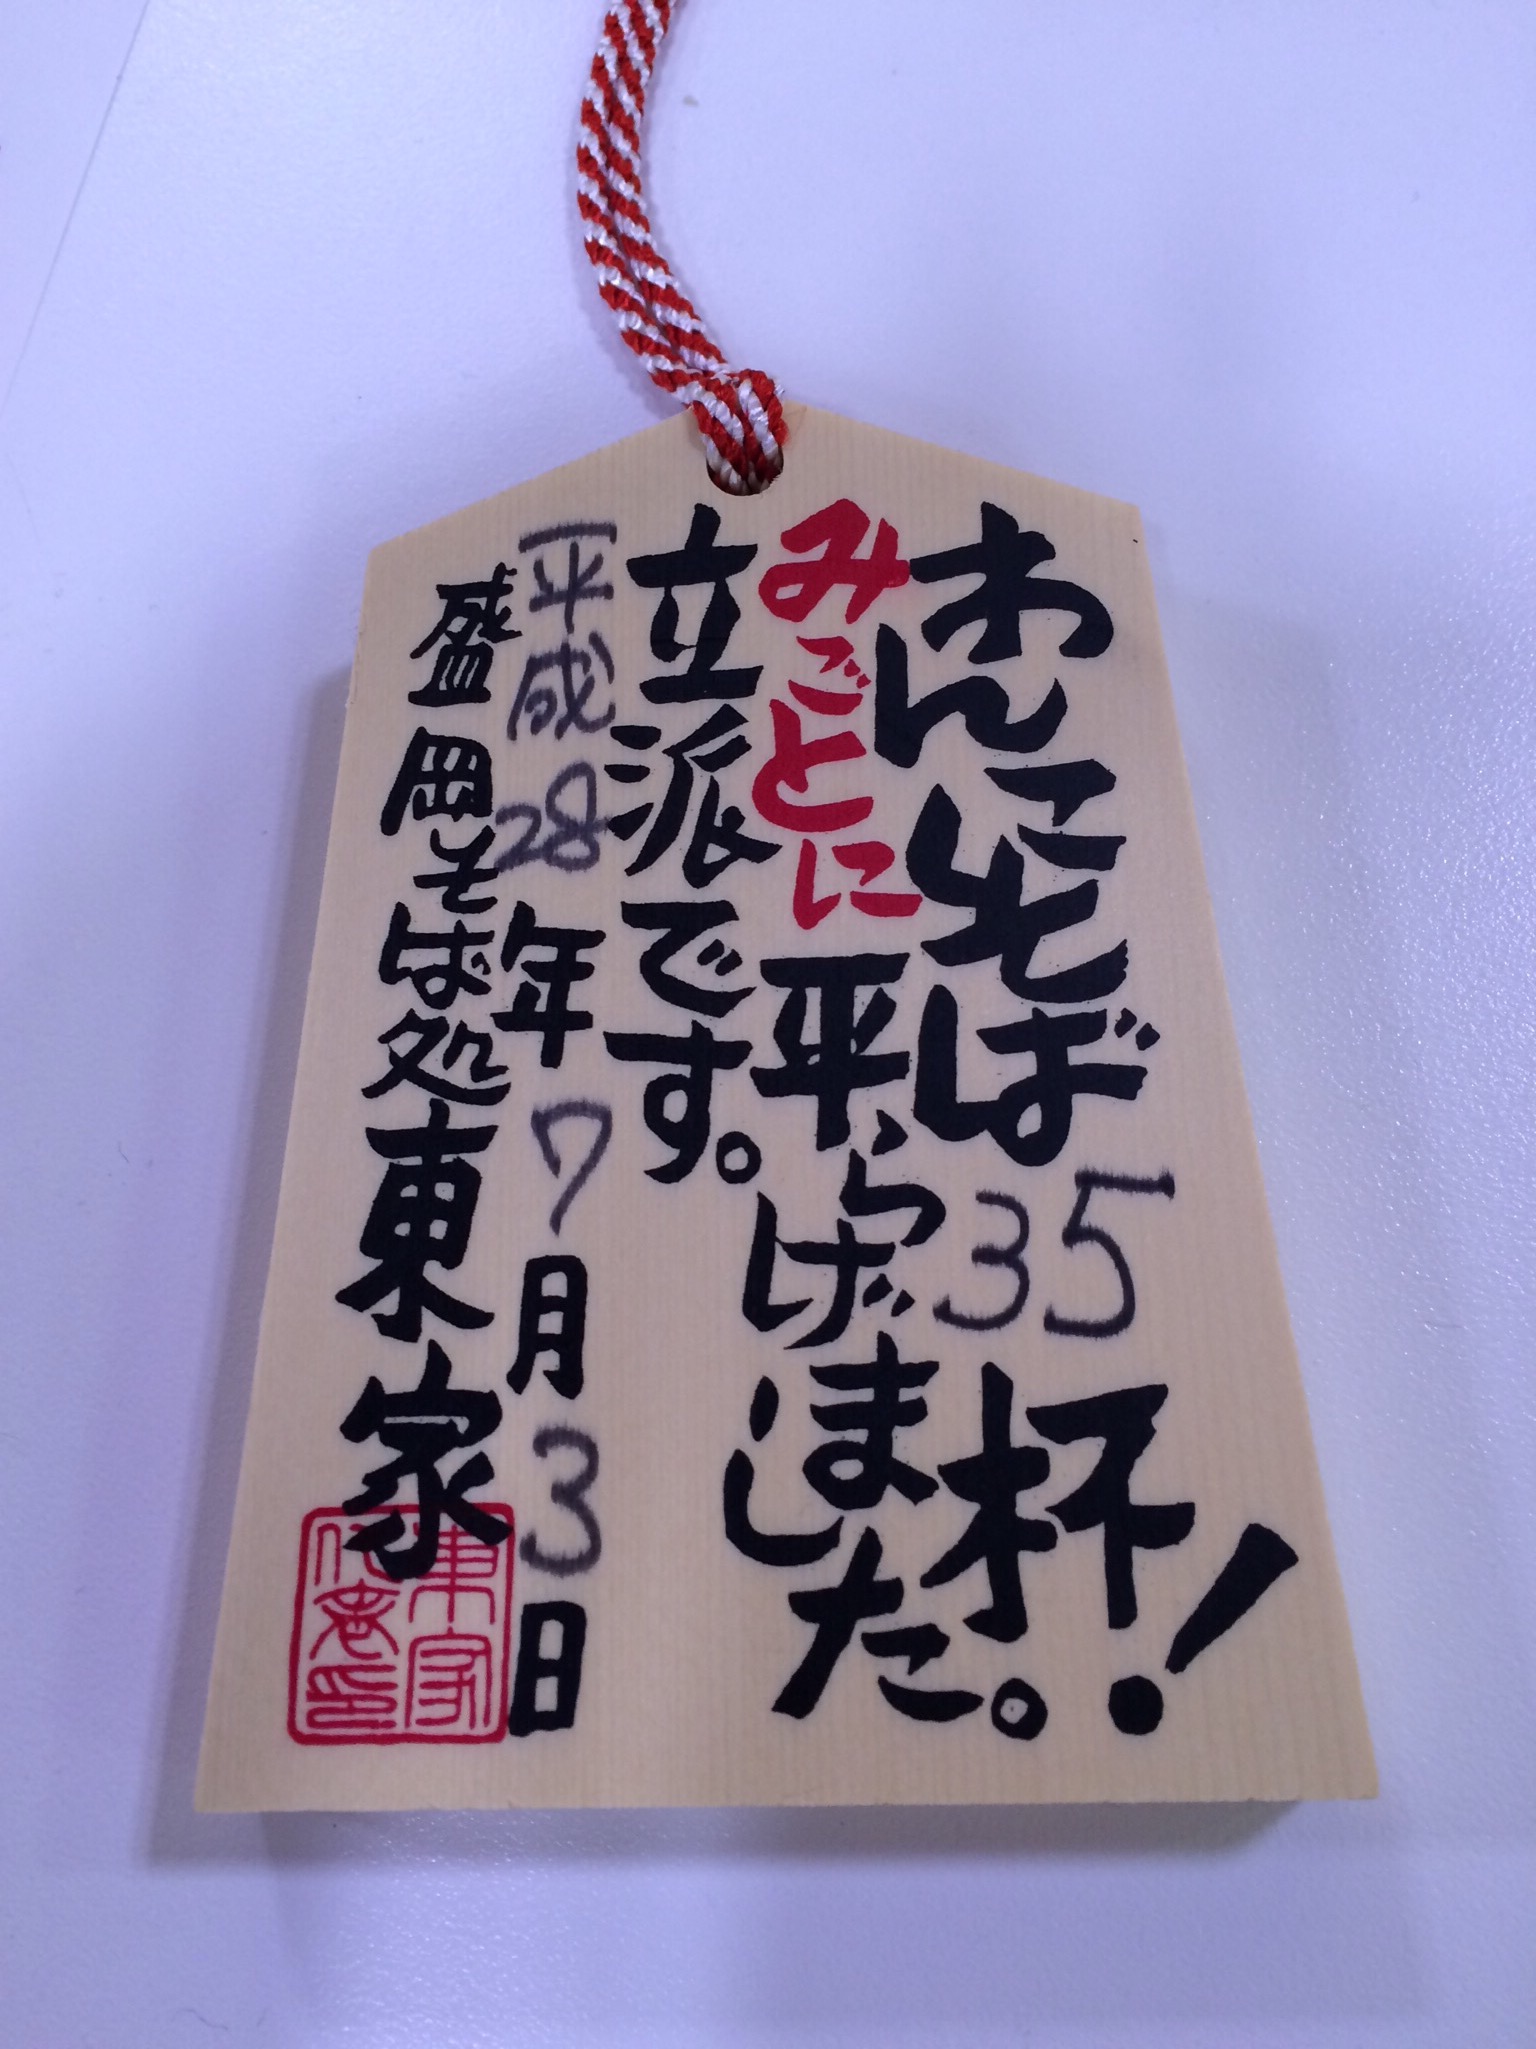 わんこそば35杯！
みごとに平らげました。
立派です。
平成28年7月3日
盛岡そば処東家
東家